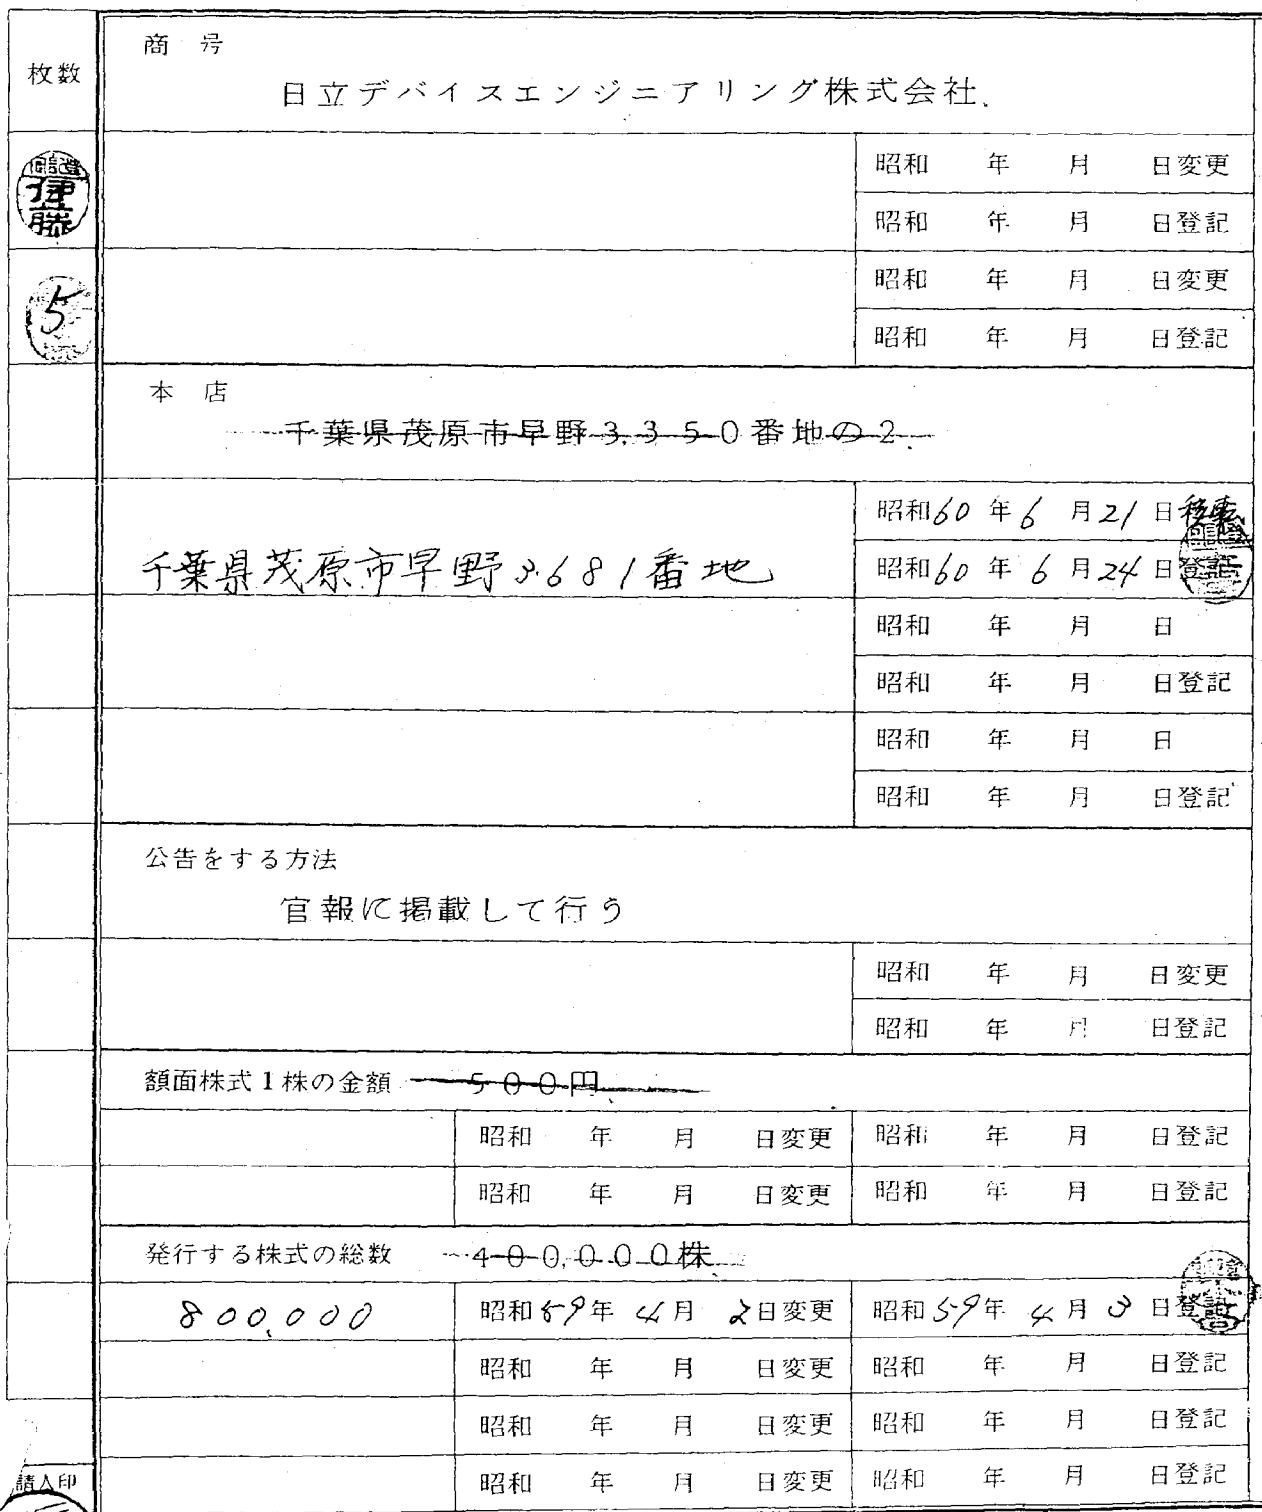 枚数
商号
日立デバイスエンジニアリング株式会社.
昭和 年 月 日変更
伊藤
昭和 年 月 日登記
昭和 年 月 日変更
5
昭和 年 月 日登記
本店
千葉県茂原市早野3,350番地の2.
昭和60年6月21日移転
千葉県茂原市早野3,681番地
昭和60年6月24日登記
昭和 年 月 日
昭和 年 月 日登記
昭和 年 月 日
昭和 年 月 日登記
公告をする方法
官報に掲載して行う
昭和 年 月 日変更
昭和 年 月 日登記
額面株式1株の金額 500円.
昭和 年 月 日変更 昭和 年 月 日登記
昭和 年 月 日変更 昭和 年 月 日登記
発行する株式の総数 400,000株.
800,000 昭和59年4月2日変更 昭和59年4月3日登記
昭和 年 月 日変更 昭和 年 月 日登記
昭和 年 月 日変更 昭和 年 月 日登記
請人印
昭和 年 月 日変更 昭和 年 月 日登記